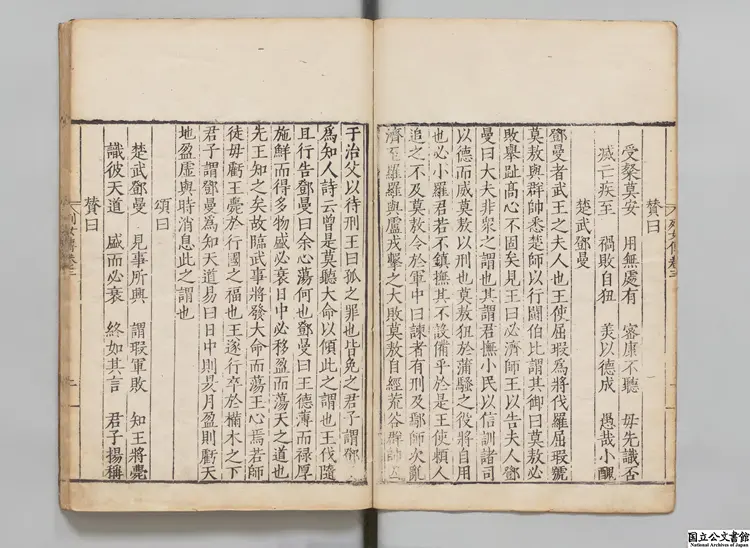 列女傳卷三
贊曰
受粲莫安 用無處有 審康不聽 毋先識否
滅亡疾至 禍敗自狃 美以德成 愚哉小醜
楚武鄧曼
鄧曼者武王之夫人也王使屈瑕為將伐羅屈瑕號
莫敖與群帥悉楚師以行鬬伯比謂其御曰莫敖必
敗舉趾高心不固矣見王曰必濟師王以告夫人鄧
曼曰大夫非衆之謂也其謂君撫小民以信訓諸司
以德而威莫敖以刑也莫敖狃於蒲騷之役將自用
也必小羅君若不鎮撫其不設備乎於是王使頼人
追之不及莫敖令於軍中曰諫者有刑及鄢師次亂
濟至羅羅與盧戎擊之大敗莫敖自經荒谷群帥囚
于治父以待刑王曰孤之罪也皆免之君子謂鄧
爲知人詩云曾是莫聽大命以傾此之謂也王伐隨
且行告鄧曼曰余心蕩何也鄧曼曰王德薄而禄厚
施鮮而得多物盛必衰日中必移盈而蕩天之道也
先王知之矣故臨武事將發大命而蕩王心焉若師
徒毋虧王薨於行國之福也王遂行卒於樠木之下
君子謂鄧曼為知天道易曰日中則昃月盈則虧天
地盈虛與時消息此之謂也
頌曰
楚武鄧曼 見事所興 謂瑕軍敗 知王將薨
識彼天道 盛而必衰 終如其言 君子揚稱
贊曰
列女傳卷三
国立公文書館
National Archives of Japan